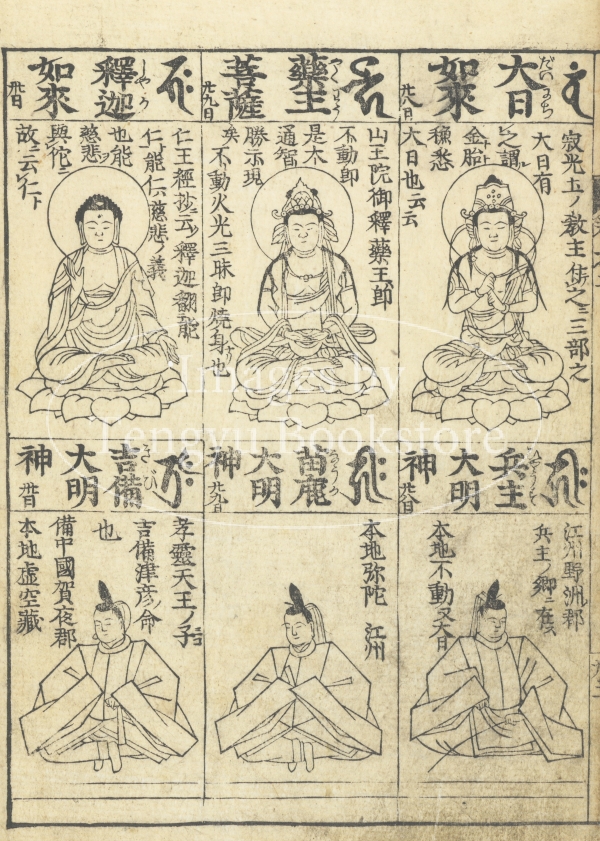 大日
如來
だいにち
廿八日
寂光土ノ教主佳之三部之
大日有
之謂
金胎
穪悉
大日也云云
藥王
菩薩
やくわう
廿九日
山王院御釋藥王即
不動即
是大
通智
勝示現
矣不動火光三昧即燒身也
釋迦
如來
しやか
卅日
仁王經抄云釋迦翻能
仁ト能仁ハ慈悲ノ義
也能
慈悲
與佗ニ
故ニ云仁ト
兵主
大明
神
廿八日
江州野洲郡
兵主ノ鄉ニ在ス
本地不動又大日
苗鹿
大明
神
廿九日
本地弥陀 江州
吉備
大明
神
きび
卅日
孝靈天王ノ子
吉備津彦ノ命
也
備中國賀夜郡
本地虚空藏
Images by
Tengyu Bookstore